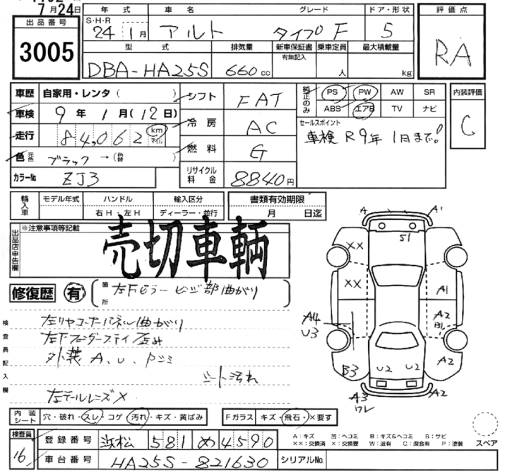 7月24日
年式 車名 グレード ドア・形状 評価点
出品番号 3005
S・H・R 24年1月 アルト タイプF 5 RA
型式 排気量 新車保証書 乗車定員 最大積載量
有無記入
DBA-HA25S 660cc 人 kg
車歴 自家用・レンタ( ) シフト FAT 純正のみ PS PW AW SR 内装評価
ABS エアB TV ナビ C
車検 9年1月(12日) 冷房 AC セールスポイント
車検R9年1月まで!
走行 84,062 km マイル
燃料 G
色 ブラック→( )
カラーNo ZJ3 リサイクル料金 8840円
輸入車 モデル年式 ハンドル 輸入区分 書類有効期限
右H・左H ディーラー・並行 月 日迄
※注意事項等記載
出品店申告欄
売切車輌
修復歴 有 箇所 左Fピラーヒンジ部曲がり
検査員記入欄
左リヤコーナーパネル曲がり
外装A、U、P
シート汚れ
左テールレンズ×
A A1
S1
XX
XX A1
A4 A2
U3 B1
B3 U2 U2 A2
A3 A2
ワレ
内装シート 穴・破れ・スレ・コゲ・汚れ・キズ・黄ばみ Fガラス キズ・飛石・×要す
スペア
検査員 16
登録番号 浜松 581 め 4590
A:キズ U:ヘコミ B:キズ&ヘコミ S:サビ
車台番号 HA25S-821630 シリアルNo